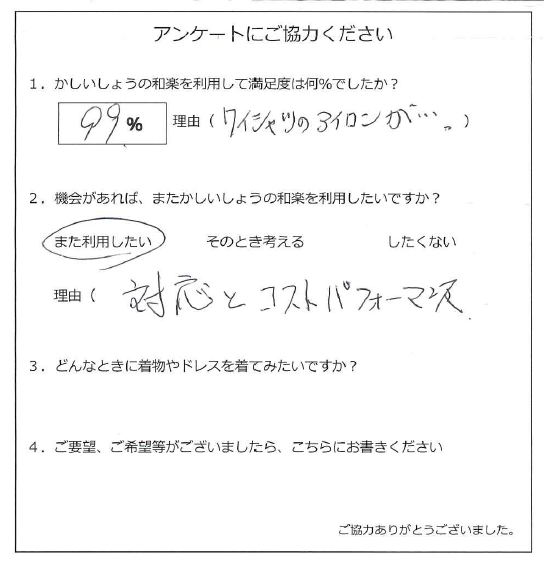 アンケートにご協力ください
1．かしいしょうの和楽を利用して満足度は何%でしたか？
99% 理由（ワイシャツのアイロンが…。）
2．機会があれば、またかしいしょうの和楽を利用したいですか？
また利用したい そのとき考える したくない
理由（ 対応とコストパフォーマンス
3．どんなときに着物やドレスを着てみたいですか？
4．ご要望、ご希望等がございましたら、こちらにお書きください
ご協力ありがとうございました。